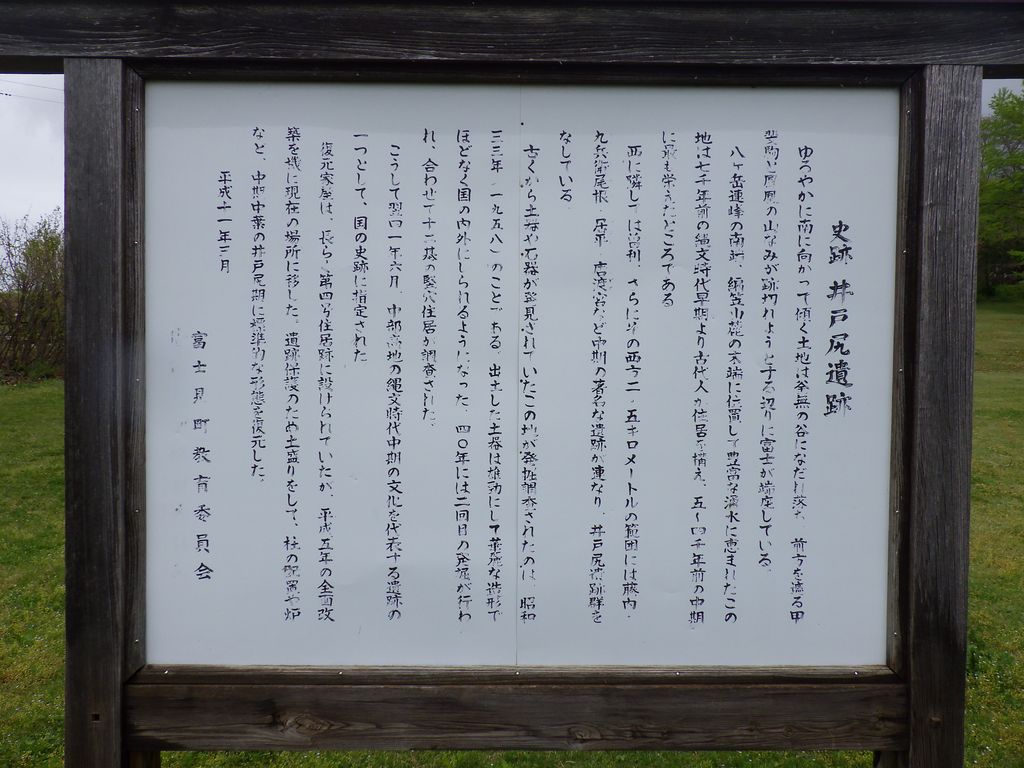 史跡 井戸尻遺跡
ゆるやかに南に向かって傾く土地は釜無の谷になだれ落ち、前方を遮る甲
斐駒の屏風の山なみが跡切れようとする辺りに富士が端座している。
八ヶ岳連峰の南端、編笠山麓の末端に位置して豊富な湧水に恵まれたこの
地は七千年前の縄文時代早期より古代人が住居を構え、五〜四千年前の中期
に最も栄えたところである
西に隣しては曽利、さらにその西方二・五キロメートルの範囲には藤内・
九兵衛尾根・居平・唐渡宮など中期の著名な遺跡が連なり、井戸尻遺跡群を
なしている
古くから土器や石器が発見されていたこの地が発掘調査されたのは、昭和
三三年(一九五八)のことである。出土した土器は雄勁にして華麗な造形で
ほどなく国の内外にしられるようになった。四〇年には二回目の発掘が行わ
れ、合わせて十二基の竪穴住居が調査された。
こうして翌四一年六月、中部高地の縄文時代中期の文化を代表する遺跡の
一つとして、国の史跡に指定された
復元家屋は、長らく第四号住居跡に設けられていたが、平成五年の全面改
築を機に現在の場所に移した。遺跡保護のため土盛りをして、柱の配置や炉
など、中期中葉の井戸尻期に標準的な形態を復元した。
平成十一年三月
富士見町教育委員会